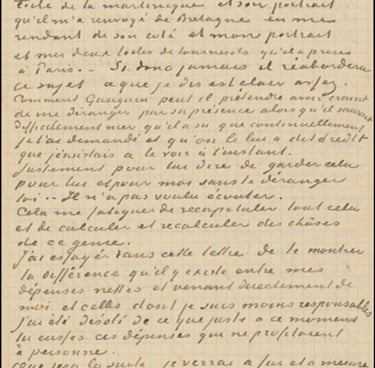 toile de la martinique et son portrait
qu'il m'a envoyé de Bretagne en me
rendant de son coté et mon portrait
et mes deux toiles de tournesols qu'il a prises
à Paris. – Si donc jamais il réabordera
ce sujet ce que je dis est clair assez.
Comment Gauguin peut il prétendre avoir craint
de me déranger par sa présence alors qu'il saurait
difficilement nier qu'il a su que continuellement
je l'ai demandé et qu'on le lui a dit & redit
que j'insistais à le voir à l'instant.
Justement pour lui dire de garder cela
pour lui et pour moi sans te déranger
toi. – Il n'a pas voulu écouter.
Cela me fatigue de récapituler tout cela
et de calculer et recalculer des choses
de ce genre.
J'ai essayé dans cette lettre de te montrer
la différence qu'il y existe entre mes
dépenses nettes et venant directement de
moi et celles dont je suis moins responsable
j'ai été désolé de ce que juste à ce moment
tu eusses ces dépenses qui ne profitaient
à personne.
Que sera la suite je verrai à fur et à mesure